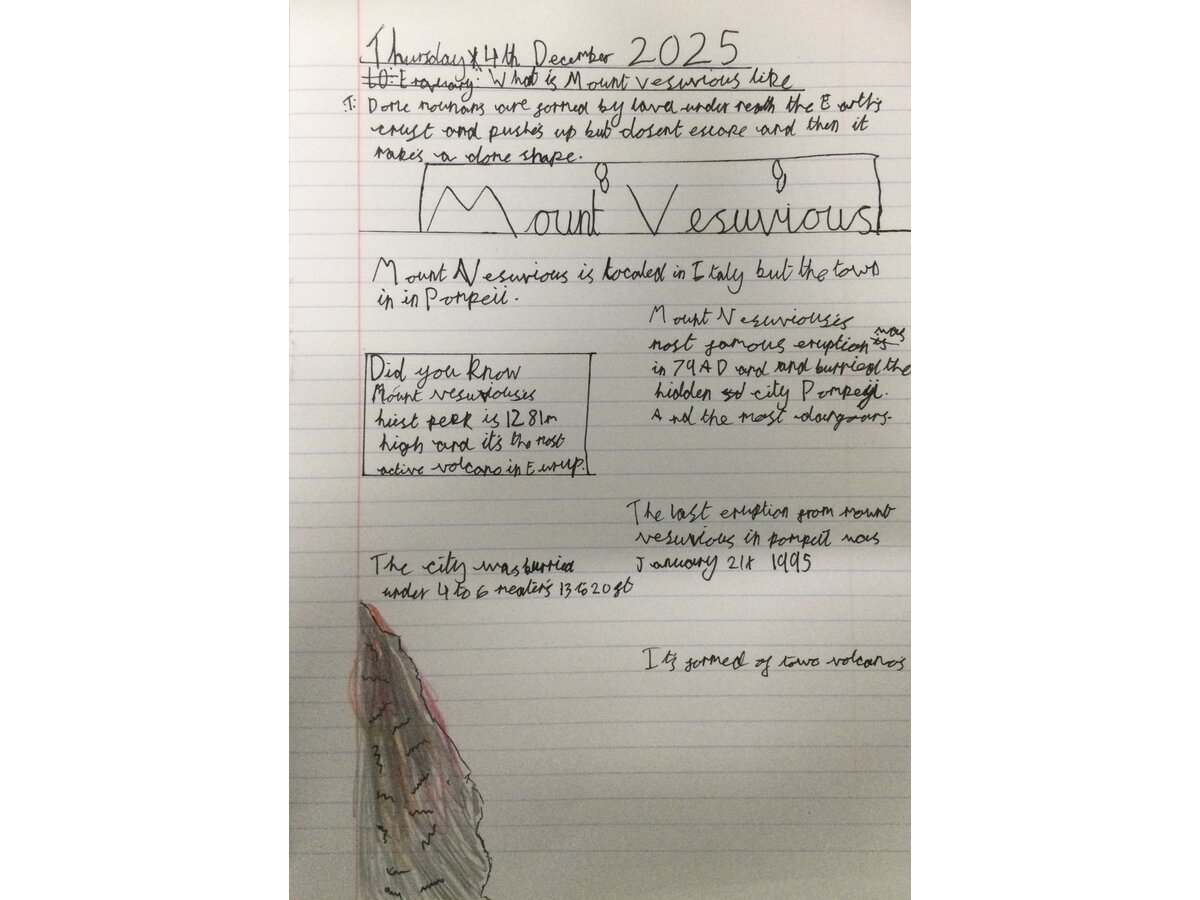 Thursday 4th December 2025
What is Mount vesuvious like
T: Dome mounans are formed by lava under neath the Earth's
crust and pushes up but dosent escape and then it
makes a dome shape.
Mount Vesuvious
Mount Vesuvious is Located in Italy but the town
in in Pompeii.
Mount Vesuviouses
most famous eruption was
in 79AD and and burried the
hidden city Pompeji.
And the most
Did you know
Mount vesuviouses
heist peek is 1281m
high and it's the most
active volcano in Eurup.
The last eruption from mount
vesuvious in pompeii was
January 21st 1995
The city was burried
under 4 to 6 meaters 13 to 20 ft
It's formed of towo volcano's